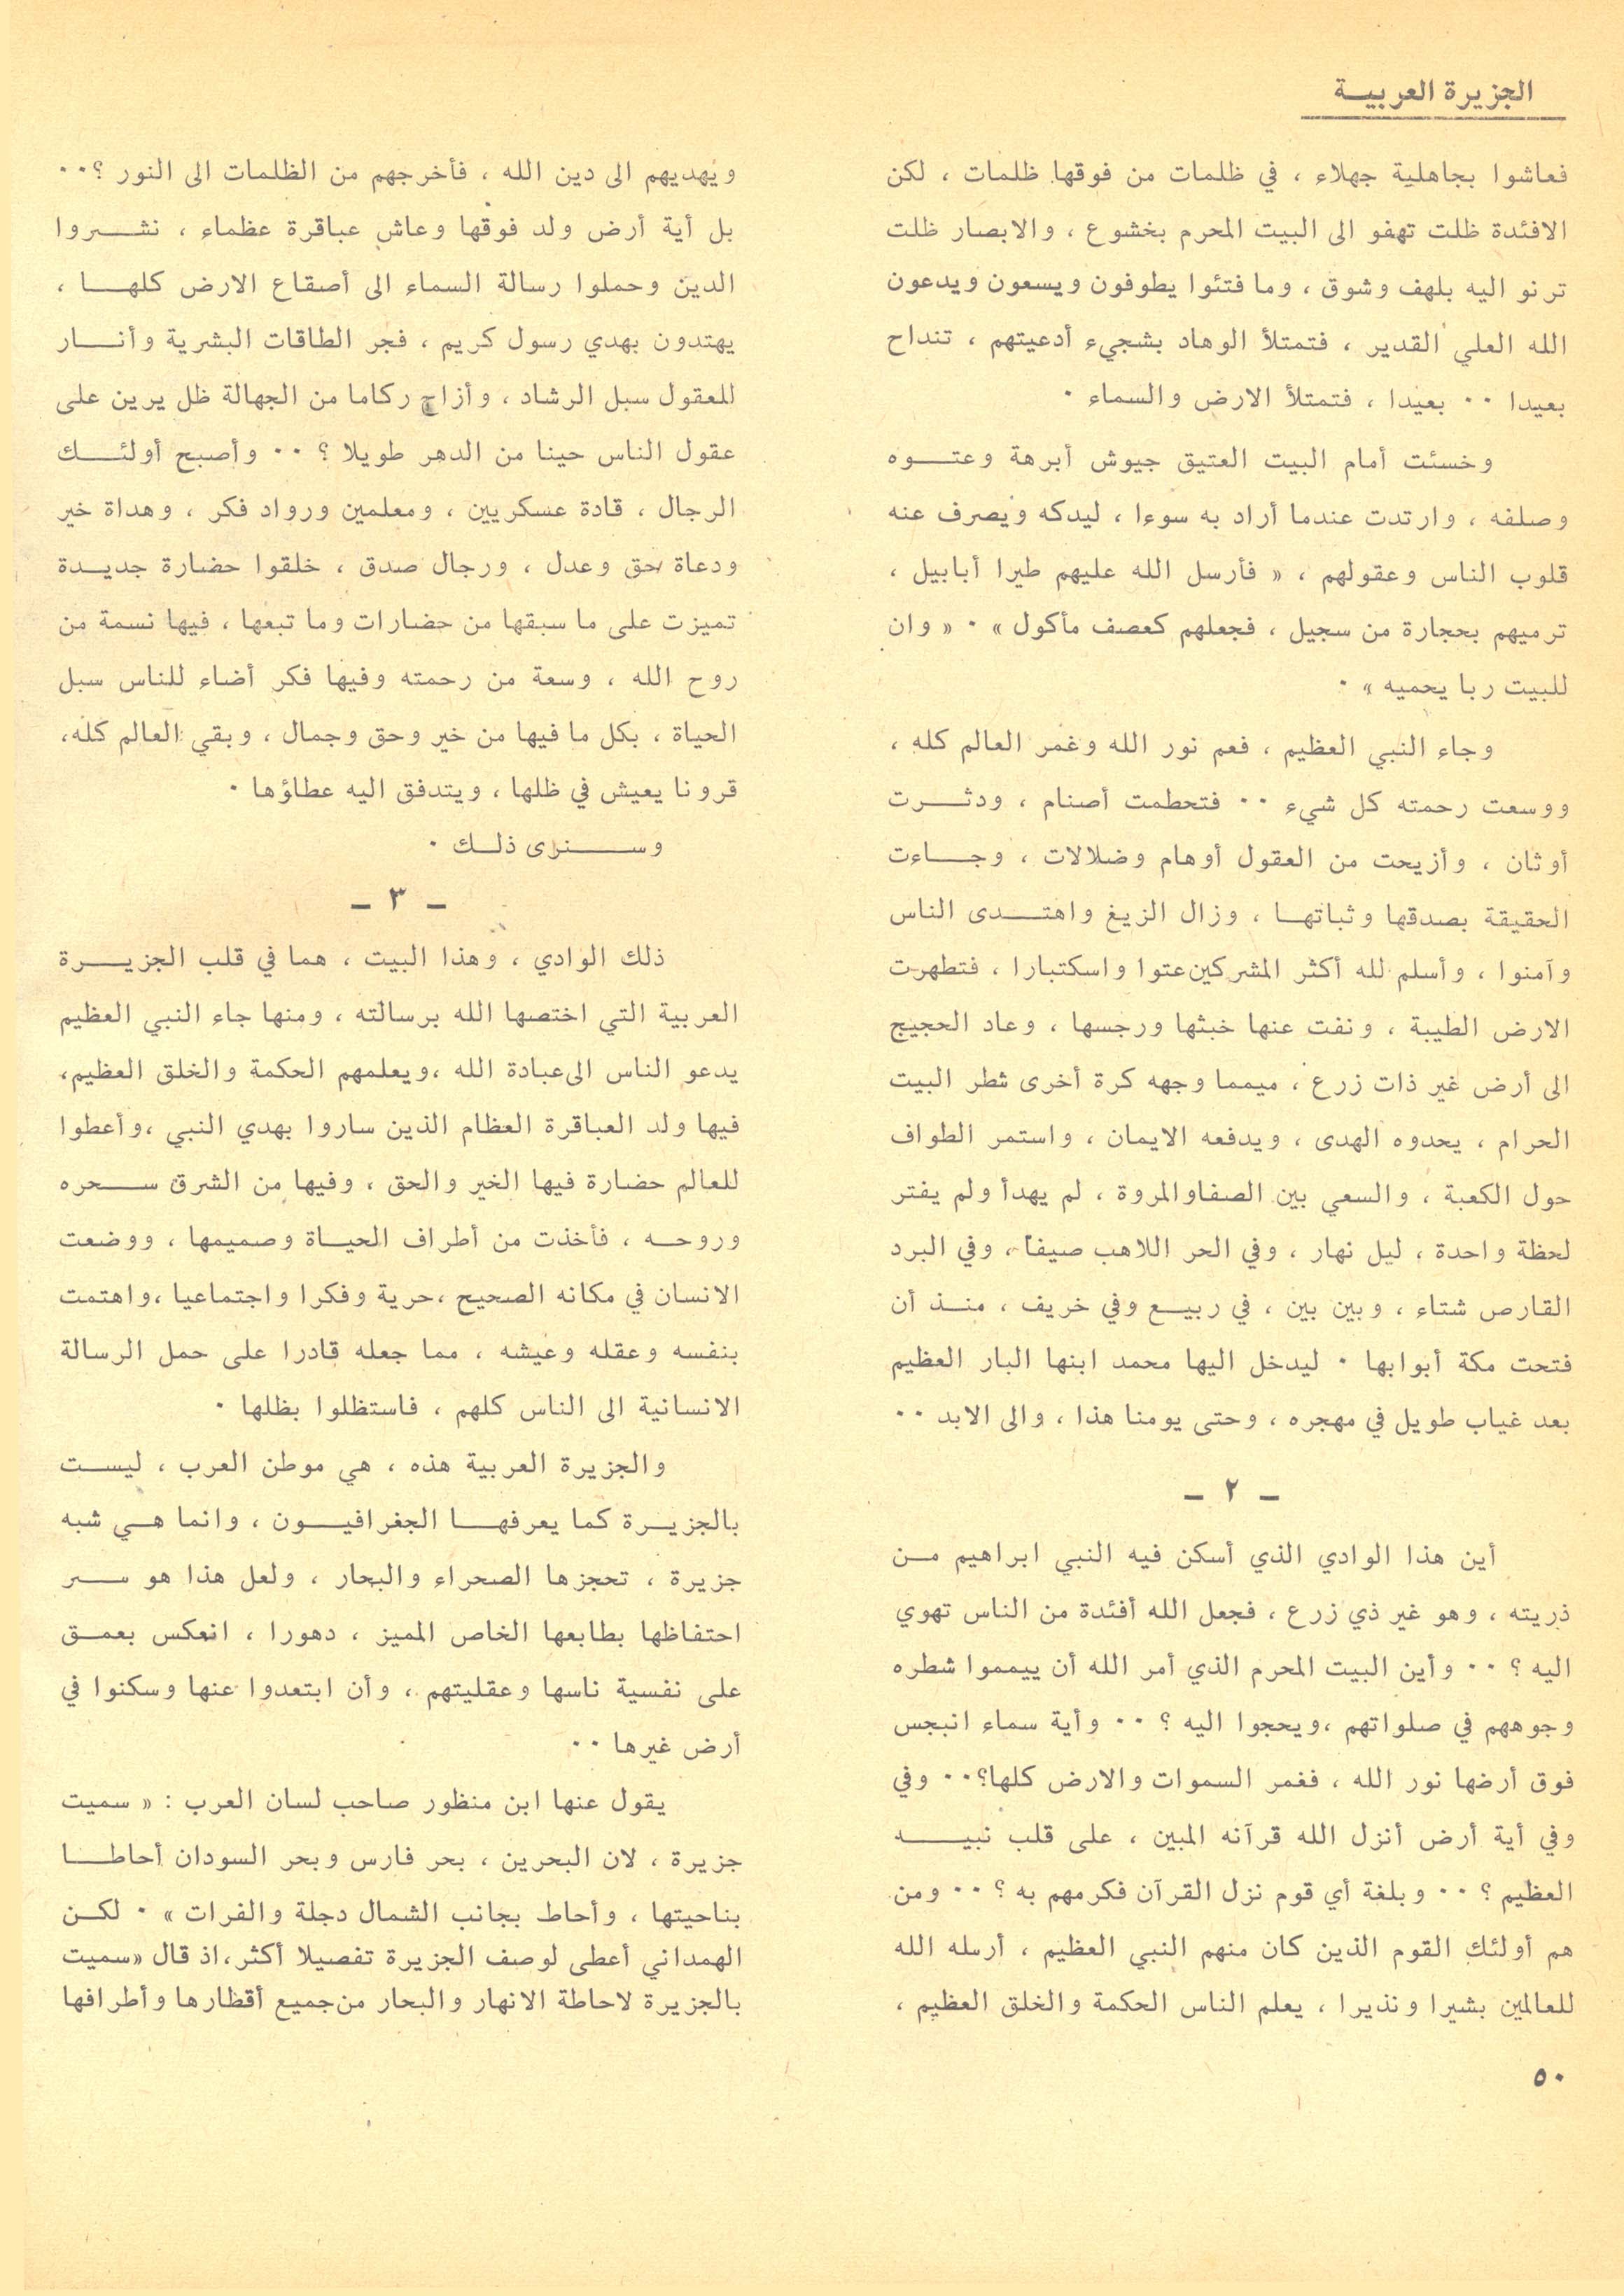 الجزيرة العربيـــة
فعاشوا بجاهلية جهلاء ، في ظلمات من فوقها ظلمات ، لكن
الافئدة ظلت تهفو الى البيت المحرم بخشوع ، والابصار ظلت
ترنو اليه بلهف وشوق ، وما فتئوا يطوفون ويسعون ويدعون
الله العلي القدير ، فتمتلأ الوهاد بشجيء أدعيتهم ، تنداح
بعيدا ٠٠ بعيدا ، فتمتلأ الارض والسماء ٠
وخسئت أمام البيت العتيق جيوش أبرهة وعتـــوه
وصلفه ، وارتدت عندما أراد به سوءا ، ليدكه ويصرف عنه
قلوب الناس وعقولهم ، « فأرسل الله عليهم طيرا أبابيل ،
ترميهم بحجارة من سجيل ، فجعلهم كعصف مأكول » ٠ « وان
للبيت ربا يحميه » ٠
وجاء النبي العظيم ، فعم نور الله وغمر العالم كله ،
ووسعت رحمته كل شيء ٠٠ فتحطمت أصنام ، ودثـــرت
أوثان ، وأزيحت من العقول أوهام وضلالات ، وجـــاءت
الحقيقة بصدقها وثباتهـا ، وزال الزيغ واهتـــدى الناس
وآمنوا ، وأسلم لله أكثر المشركين عتوا واسكتبارا ، فتطهرت
الارض الطيبة ، ونفت عنها خبثها ورجسها ، وعاد الحجيج
الى أرض غير ذات زرع ، ميمما وجهه كرة أخرى شطر البيت
الحرام ، يحدوه الهدى ، ويدفعه الايمان ، واستمر الطواف
حول الكعبة ، والسعي بين الصفا والمروة ، لم يهدأ ولم يفتر
لحظة واحدة ، ليل نهار ، وفي الحر اللاهب صيفا ، وفي البرد
القارص شتاء ، وبين بين ، في ربيـــع وفي خريف ، منـــذ أن
فتحت مكة أبوابها ٠ ليدخل اليها محمد ابنها البار العظيم
بعد غياب طويل في مهجره ، وحتى يومنا هذا ، والى الابد ٠٠
ـ ٢ ـ
أين هذا الوادي الذي أسكن فيه النبي ابراهيم مـــن
ذريته ، وهو غير ذي زرع ، فجعل الله أفئدة من الناس تهوي
اليه ؟ ٠٠ وأين البيت المحرم الذي أمر الله أن ييمموا شطره
وجوههم في صلواتهم ، ويحجوا اليه ؟ ٠٠ وأية سماء انبجس
فوق أرضها نور الله ، فغمر السموات والارض كلها؟ ٠٠ وفي
وفي أية أرض أنزل الله قرآنه المبين ، على قلب نبيـــه
العظيم ؟ ٠٠ وبلغة أي قوم نزل القرآن فكرمهم به ؟ ٠٠ ومن
هم أولئك القوم الذين كان منهم النبي العظيم ، أرسله الله
للعالمين بشيرا ونذيرا ، يعلم الناس الحكمة والخلق العظيم ،
ويهديهم الى دين الله ، فأخرجهم من الظلمات الى النور ؟ ٠٠
بل أية أرض ولد فوقها وعاش عباقرة عظماء ، نشـــروا
الدين وحملوا رسالة السماء الى أصقاع الارض كلهـــا ،
يهتدون بهدي رسول كريم ، فجر الطاقات البشرية وأنـــار
للعقول سبل الرشاد ، وأزاح ركاما من الجهالة ظل يرين على
عقول الناس حينا من الدهر طويلا ؟ ٠٠ وأصبح أولئـــك
الرجال ، قادة عسكريين ، ومعلمين ورواد فكر ، وهداة خير
ودعاة حق وعدل ، ورجال صدق ، خلقوا حضارة جديـــدة
تميزت على ما سبقها من حضارات وما تبعها ، فيها نسمة من
روح الله ، وسعة من رحمته وفيها فكر أضاء للناس سبل
الحياة ، بكل ما فيها من خير وحق وجمال ، وبقي العالم كله ،
قرونا يعيش في ظلها ، ويتدفق اليه عطاؤها ٠
وســـنرى ذلـــك ٠
ـ ٣ ـ
ذلك الوادي ، وهذا البيت ، هما في قلب الجزيـــرة
العربية التي اختصها الله برسالته ، ومنها جاء النبي العظيم
يدعو الناس الى عبادة الله ، ويعلمهم الحكمة والخلق العظيم ،
فيها ولد العباقرة العظام الذين ساروا بهدي النبي ، وأعطوا
للعالم حضارة فيها الخير والحق ، وفيها من الشرق ســـحره
وروحـــه ، فأخذت من أطراف الحيـــاة وصميمها ، ووضعت
الانسان في مكانه الصحيح ، حرية وفكرا واجتماعيا ، واهتمت
بنفسه وعقله وعيشه ، مما جعله قادرا على حمل الرسالة
الانسانية الى الناس كلهم ، فاستظلوا بظلها ٠
والجزيرة العربية هذه ، هي موطن العرب ، ليســـت
بالجزيـــرة كما يعرفهـــا الجغرافيـــون ، وانما هـــي شبه
جزيرة ، تحجزها الصحراء والبحار ، ولعل هذا هو ســـر
احتفاظها بطابعها الخاص المميز ، دهورا ، انعكس بعمـــق
على نفسية ناسها وعقليتهم ، وأن ابتعدوا عنها وسكنوا في
أرض غيرها ٠٠
يقول عنها ابن منظور صاحب لسان العرب : « سميت
جزيرة ، لان البحرين ، بحر فارس وبحر السودان أحاطـــا
بناحيتها ، وأحاط بجانب الشمال دجلة والفرات » ٠ لكـــن
الهمداني أعطى لوصف الجزيرة تفصيلا أكثر ، اذ قال «سميت
بالجزيرة لاحاطة الانهار والبحار من جميع أقظارها وأطرافها
٥٠